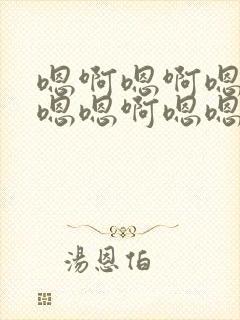 嗯啊嗯啊嗯
嗯嗯啊嗯嗯
湯恩伯